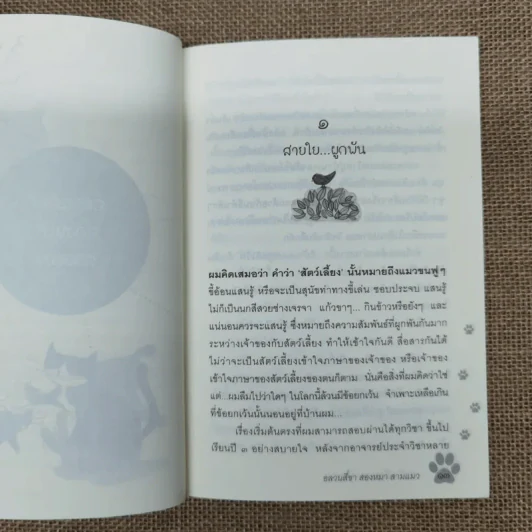 ๑
สายใย...ผูกพัน
ผมคิดเสมอว่า คำว่า 'สัตว์เลี้ยง' นั้นหมายถึงแมวขนฟูๆ
ขี้อ้อนแสนรู้ หรือจะเป็นสุนัขท่าทางขี้เล่น ชอบประจบ แสนรู้
ไม่ก็เป็นนกสีสวยช่างเจรจา แก้วขาๆ... กินข้าวหรือยังๆ และ
แน่นอนควรจะแสนรู้ ซึ่งหมายถึงความสัมพันธ์ที่ผูกพันกันมาก
ระหว่างเจ้าของกับสัตว์เลี้ยง ทำให้เข้าใจกันดี สื่อสารกันได้
ไม่ว่าจะเป็นสัตว์เลี้ยงเข้าใจภาษาของเจ้าของ หรือเจ้าของ
เข้าใจภาษาของสัตว์เลี้ยงของตนก็ตาม นั่นคือสิ่งที่ผมคิดว่าใช่
แต่...ผมลืมไปว่าใดๆ ในโลกนี้ล้วนมีข้อยกเว้น จำเพาะเหลือเกิน
ที่ข้อยกเว้นนั้นนอนอยู่ที่บ้านผม...
เรื่องเริ่มต้นตรงที่ผมสามารถสอบผ่านได้ทุกวิชา ขึ้นไป
เรียนปี ๓ อย่างสบายใจ หลังจากอาจารย์ประจำวิชาหลาย
อลวนสี่ขา สองหมา-สามแมว